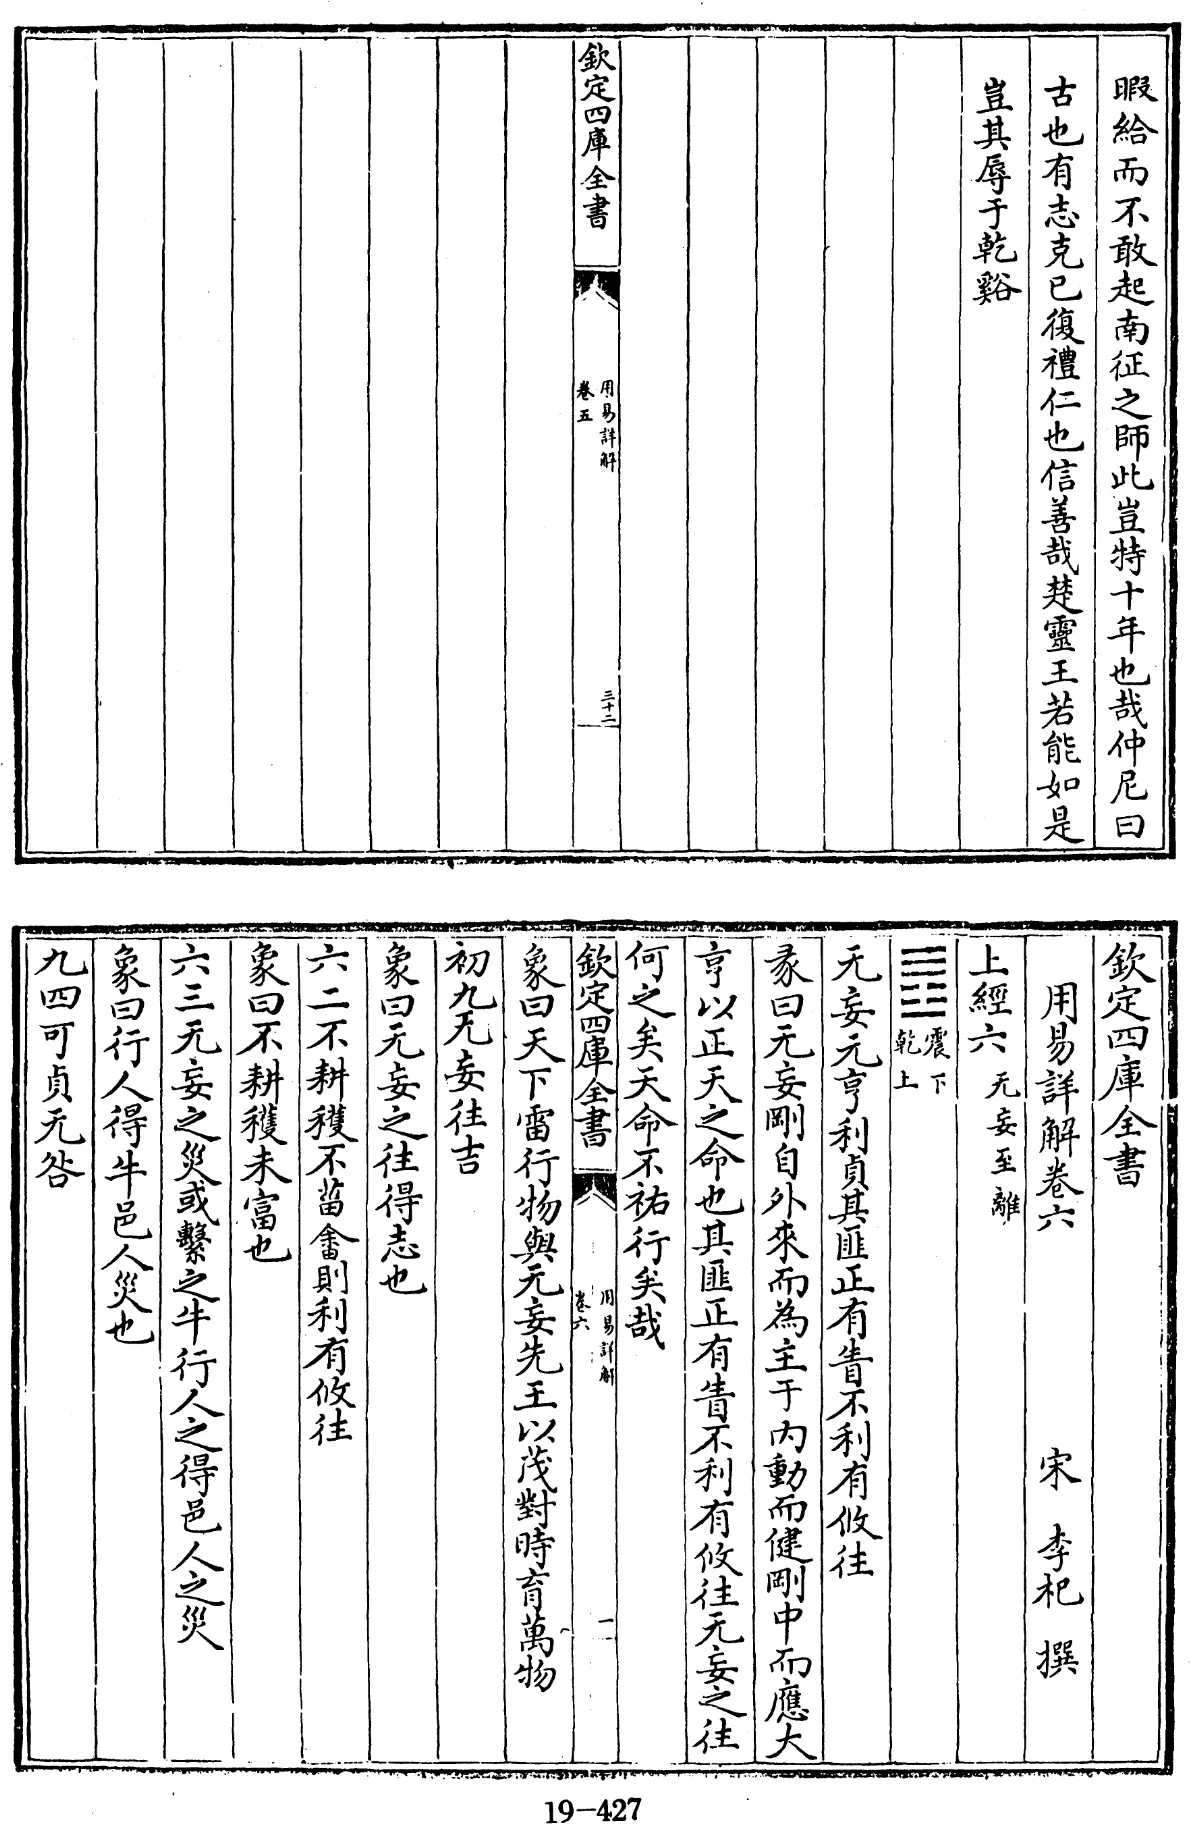 暇給而不敢起南征之師此豈特十年也哉仲尼曰
古也有志克已復禮仁也信善哉楚靈王若能如是
豈其辱于乾谿
欽定四庫全書
用易詳解
卷五
三十二
欽定四庫全書
用易詳解卷六
宋 李杞 撰
上經六 无妄至離
䷘ 震下
乾上
无妄元亨利貞其匪正有眚不利有攸往
彖曰无妄剛自外來而為主于内動而健剛中而應大
亨以正天之命也其匪正有眚不利有攸往无妄之往
何之矣天命不祐行矣哉
欽定四庫全書
用易詳解
卷六
一
象曰天下雷行物與无妄先王以茂對時育萬物
初九无妄往吉
象曰无妄之往得志也
六二不耕穫不菑畬則利有攸往
象曰不耕穫未富也
六三无妄之災或繫之牛行人之得邑人之災
象曰行人得牛邑人災也
九四可貞无咎
19-427